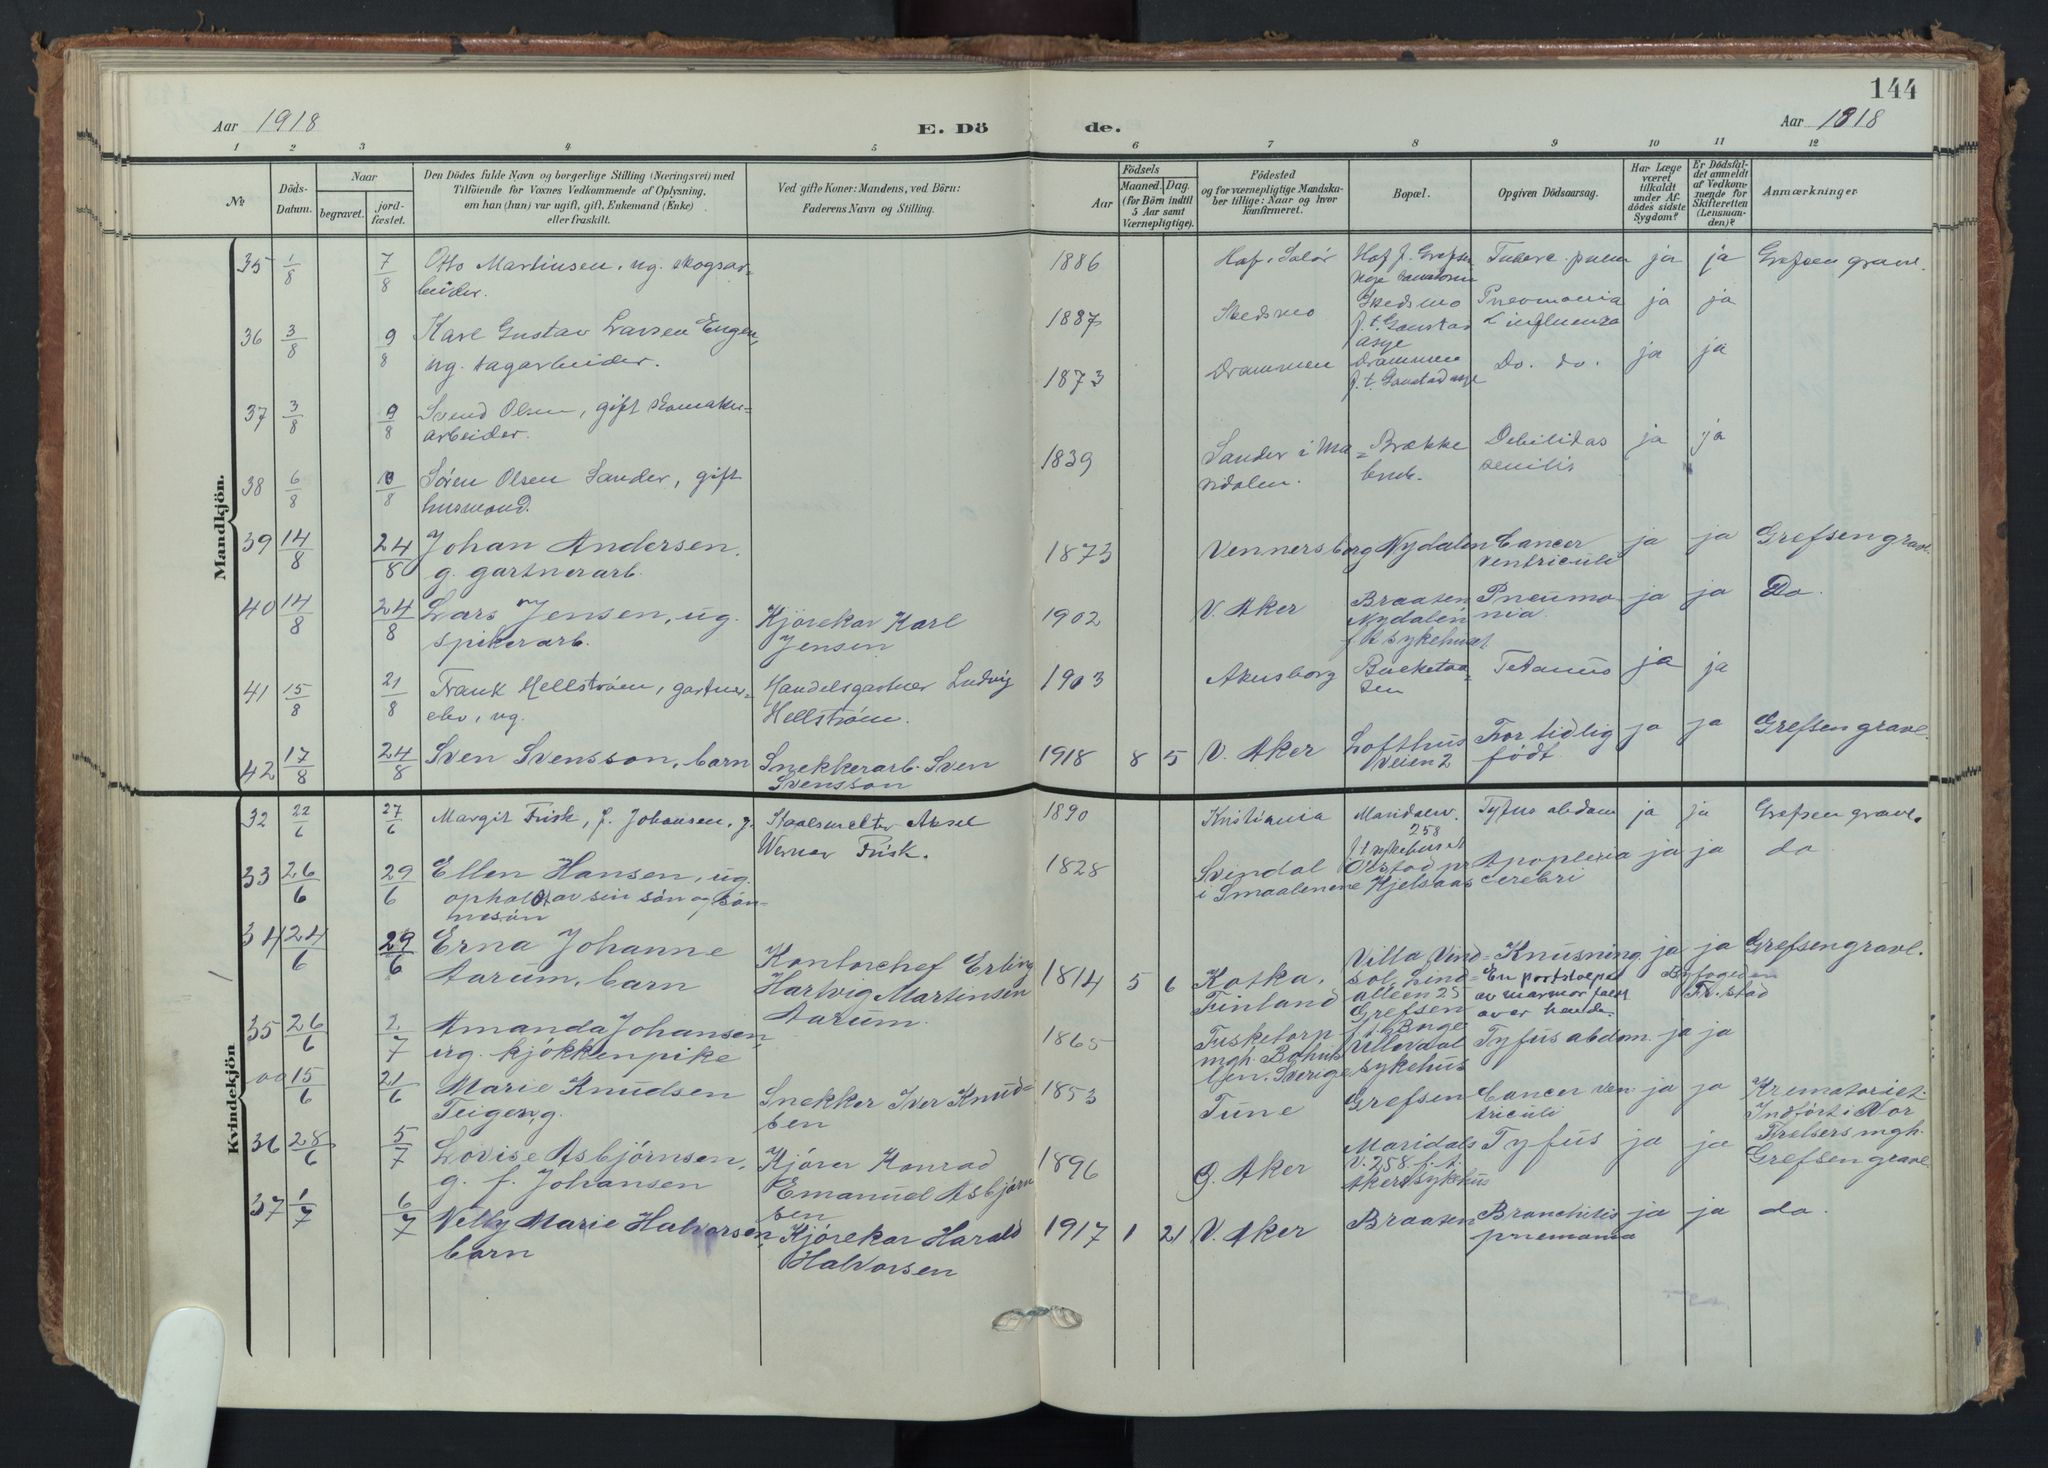 144
Aar 1918
E. Dö
de.
Aar 1918
1 2 3 4 5 6 7 8 9 10 11 12
№
Döds-Datum.
Naar
begravet.
jord-fæstet.
Den Dödes fulde Navn og borgerlige Stilling (Næringsvei) med
Tilföiende for Voxnes Vedkommende af Oplysning,
om han (hun) var ugift, gift, Enkemand (Enke)
eller fraskilt.
Ved gifte Koner: Mandens, ved Börn:
Faderens Navn og Stilling.
Födsels
Aar
Maaned. Dag.
(for Börn indtil
5 Aar samt
Værnepligtige).
Födested
og for værnepligtige Mandska-
ber tillige: Naar og hvor
konfirmeret.
Bopæl.
Opgiven Dödsaarsag.
Har Læge
været
tilkaldt
under Af-
dödes sidste
Sygdom?
Er Dödsfal-
det anmeldt
af Vedkom-
mende for
Skifteretten
(Lensman-
den)?
Anmærkninger
Mandkjön.
35 1/8 7/8 Otto Martinsen, ug. skogsar-
beider.
1886 Hof, Solør Hof f. Grefsen Tuberc. pulm ja ja Grefsen gravl.
36 3/8 9/8 Karl Gustav Larsen Engen,
ug. dagarbeider.
1887 Skedsmo Skedsmo
p.t. Gaustad
asyl
Pneumonia
influenza ja ja
37 3/8 9/8 Svend Olsen, gift
arbeider.
1873 Drammen Drammen
p.t. Gaustad asyl
Do. do. ja ja
38 6/8 10/8 Søren Olsen Sander, gift
husmand.
1839 Sander i Ma=
ridalen. Brække
Debilitas
senilis ja ja
39 14/8 24/8 Johan Andersen.
g. gartnerarb.
1873 Vennersborg Nydalen Cancer
ventriculi ja ja Grefsen gravl.
40 14/8 24/8 Lars Jensen, ug.
spikerarb.
Kjørekar Karl
Jensen
1902 V. Aker Braaten
Nydalen
f.t. sykehuset
Pneumo
nia. ja ja Do.
41 15/8 21/8 Frank Hellstrøm, gartner=
elev, ug.
Handelsgartner Ludvig
Hellstrøm.
1903 Akersborg Tetanus ja ja
42 17/8 24/8 Sven Svensson, barn
Snekkerarb. Sven
Svensson
1918 8 5 V. Aker Lofthus
veien 2
For tidlig
født ja ja Grefsen gravl.
Kvindekjön
32 22/6 27/6 Margit Frisk, f. Johansen, g.
Staalsmelter Aksel
Werner Frisk.
1890 Kristiania Maridalsv.
258
f.t. sykehuset
Tyfus abdom ja ja Grefsen gravl.
33 26/6 29/6 Ellen Hansen, ug.
ophold av sin søn og søn-
nesøn
1828 Svindal
i Smaalenene
Ørstad pr
Kjelsaas
Apoplexia
cerebri ja ja do
34 24/6 29/6 Erna Johanne
Aarum, barn
Kontorchef Erling
Hartvig Martinsen
Aarum.
1814 5 6 Kotka,
Finland
Villa Vind=
sol, Lind=
alleen 25
Grefsen
Knusning.
En portstolpe
av marmor faldt
over hende.
ja ja Grefsen gravl.
Byfogden
Fr.stad
35 26/6 2/7 Amanda Johansen,
ug. kjøkkenpike
1865 Tusketorp
mgh. Bohus
len. Sverige
f.t. Borge
Ullevaal
sykehus
Tyfus abdom. ja ja
00 15/6 21/6 Marie Knudsen
Teigen, g.
Snekker Iver Knud=
sen
1853 Tune Grefsen Cancer ven=
triculi ja ja Krematoriet.
Indført i Vor
Frelsers mgh.
36 28/6 5/7 Lovise Asbjørnsen,
g. f. Johansen
Kjører Konrad
Emanuel Asbjørn
sen
1896 Ø. Aker Maridals
v. 258. f.t.
Akers sykehus
Tyfus ja ja Grefsen gravl.
37 1/7 6/7 Nelly Marie Halvorsen,
barn
Kjørekar Harald
Halvorsen
1917 1 21 V. Aker Braaten Bronchitis
pnemonia ja ja do.